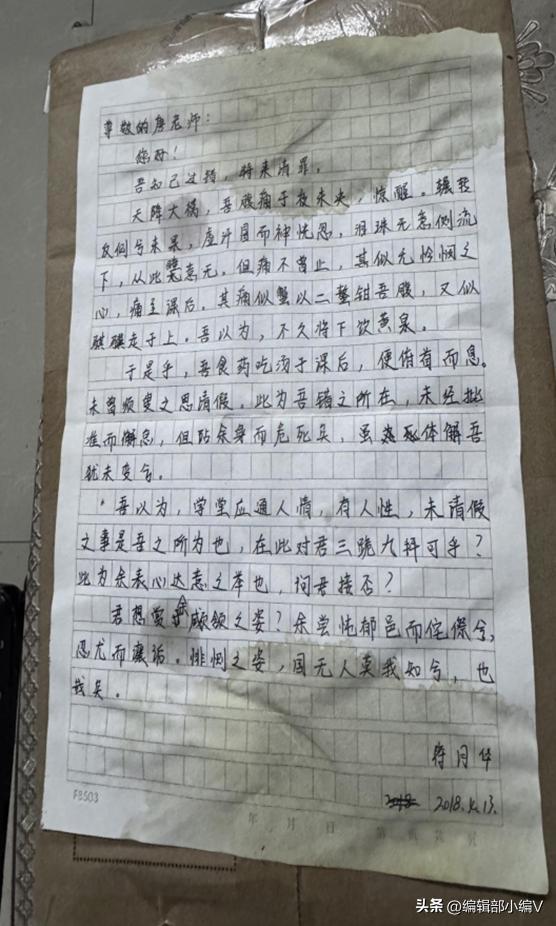 尊敬的唐老师：
您好！
吾知己过错，将来请罪。
天降大祸，吾腹痛于夜未央，惊醒。辗转
反侧兮未果，虚汗冒而神恍惚，泪珠无息侧流
下，从此意无。但痛不曾止，其似无怜悯之
心，痛至课后。其痛似蟹以二螯钳吾腹，又似
骐骥走于上。吾以为，不久将下饮黄泉。
于是乎，吾食药吃汤于课后，便俯首而息。
未曾顺叟之思请假。此为吾错之所在，未经批
准而懈怠，但阽余身而危死矣，虽体解吾
犹未变兮。
吾以为，学堂应通人情，有人性，未请假
之事是吾之所为也，在此对君三跪九拜可乎？
此为余表心达意之举也，问君接否？
君想要余顑颔之姿？余尝忳郁邑而侘傺兮，
忍尤而攘诟。悱恻之姿，国无人莫我知兮，也
哉矣。
符月华
2018.4.13.
FB503
年 月 日 第 页
头条 @编辑部小编V